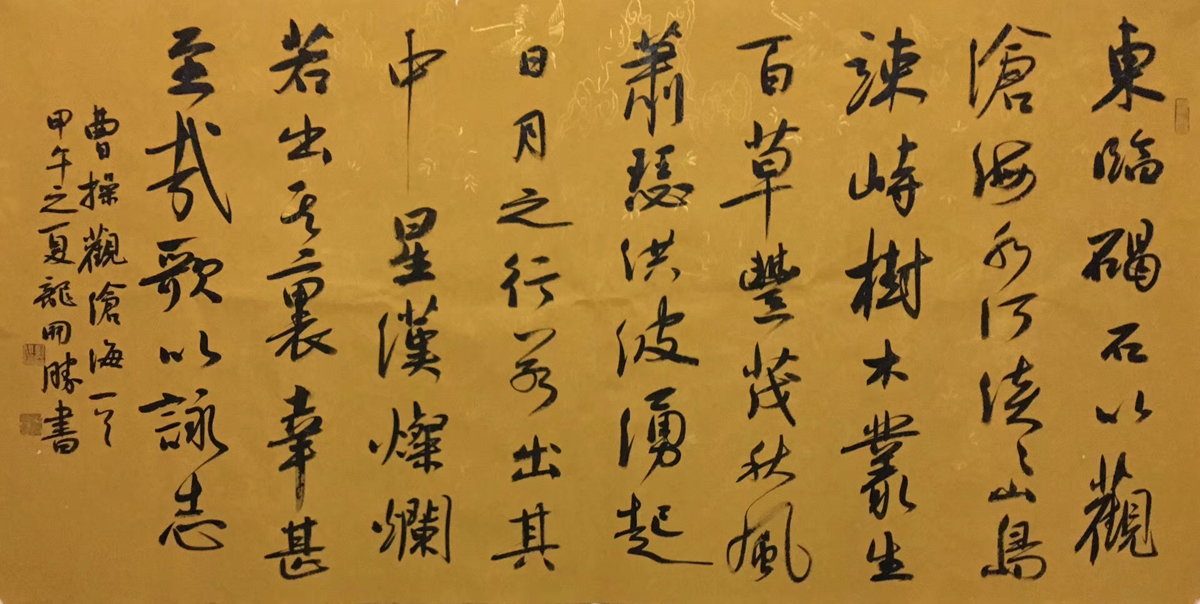 東臨碣石以觀
滄海水何澹々山島
竦峙樹木叢生
百草豐茂秋風
蕭瑟洪波湧起
日月之行若出其
中星漢燦爛
若出其裏幸甚
至哉歌以詠志
曹操觀滄海一首
甲午之夏龍開勝書